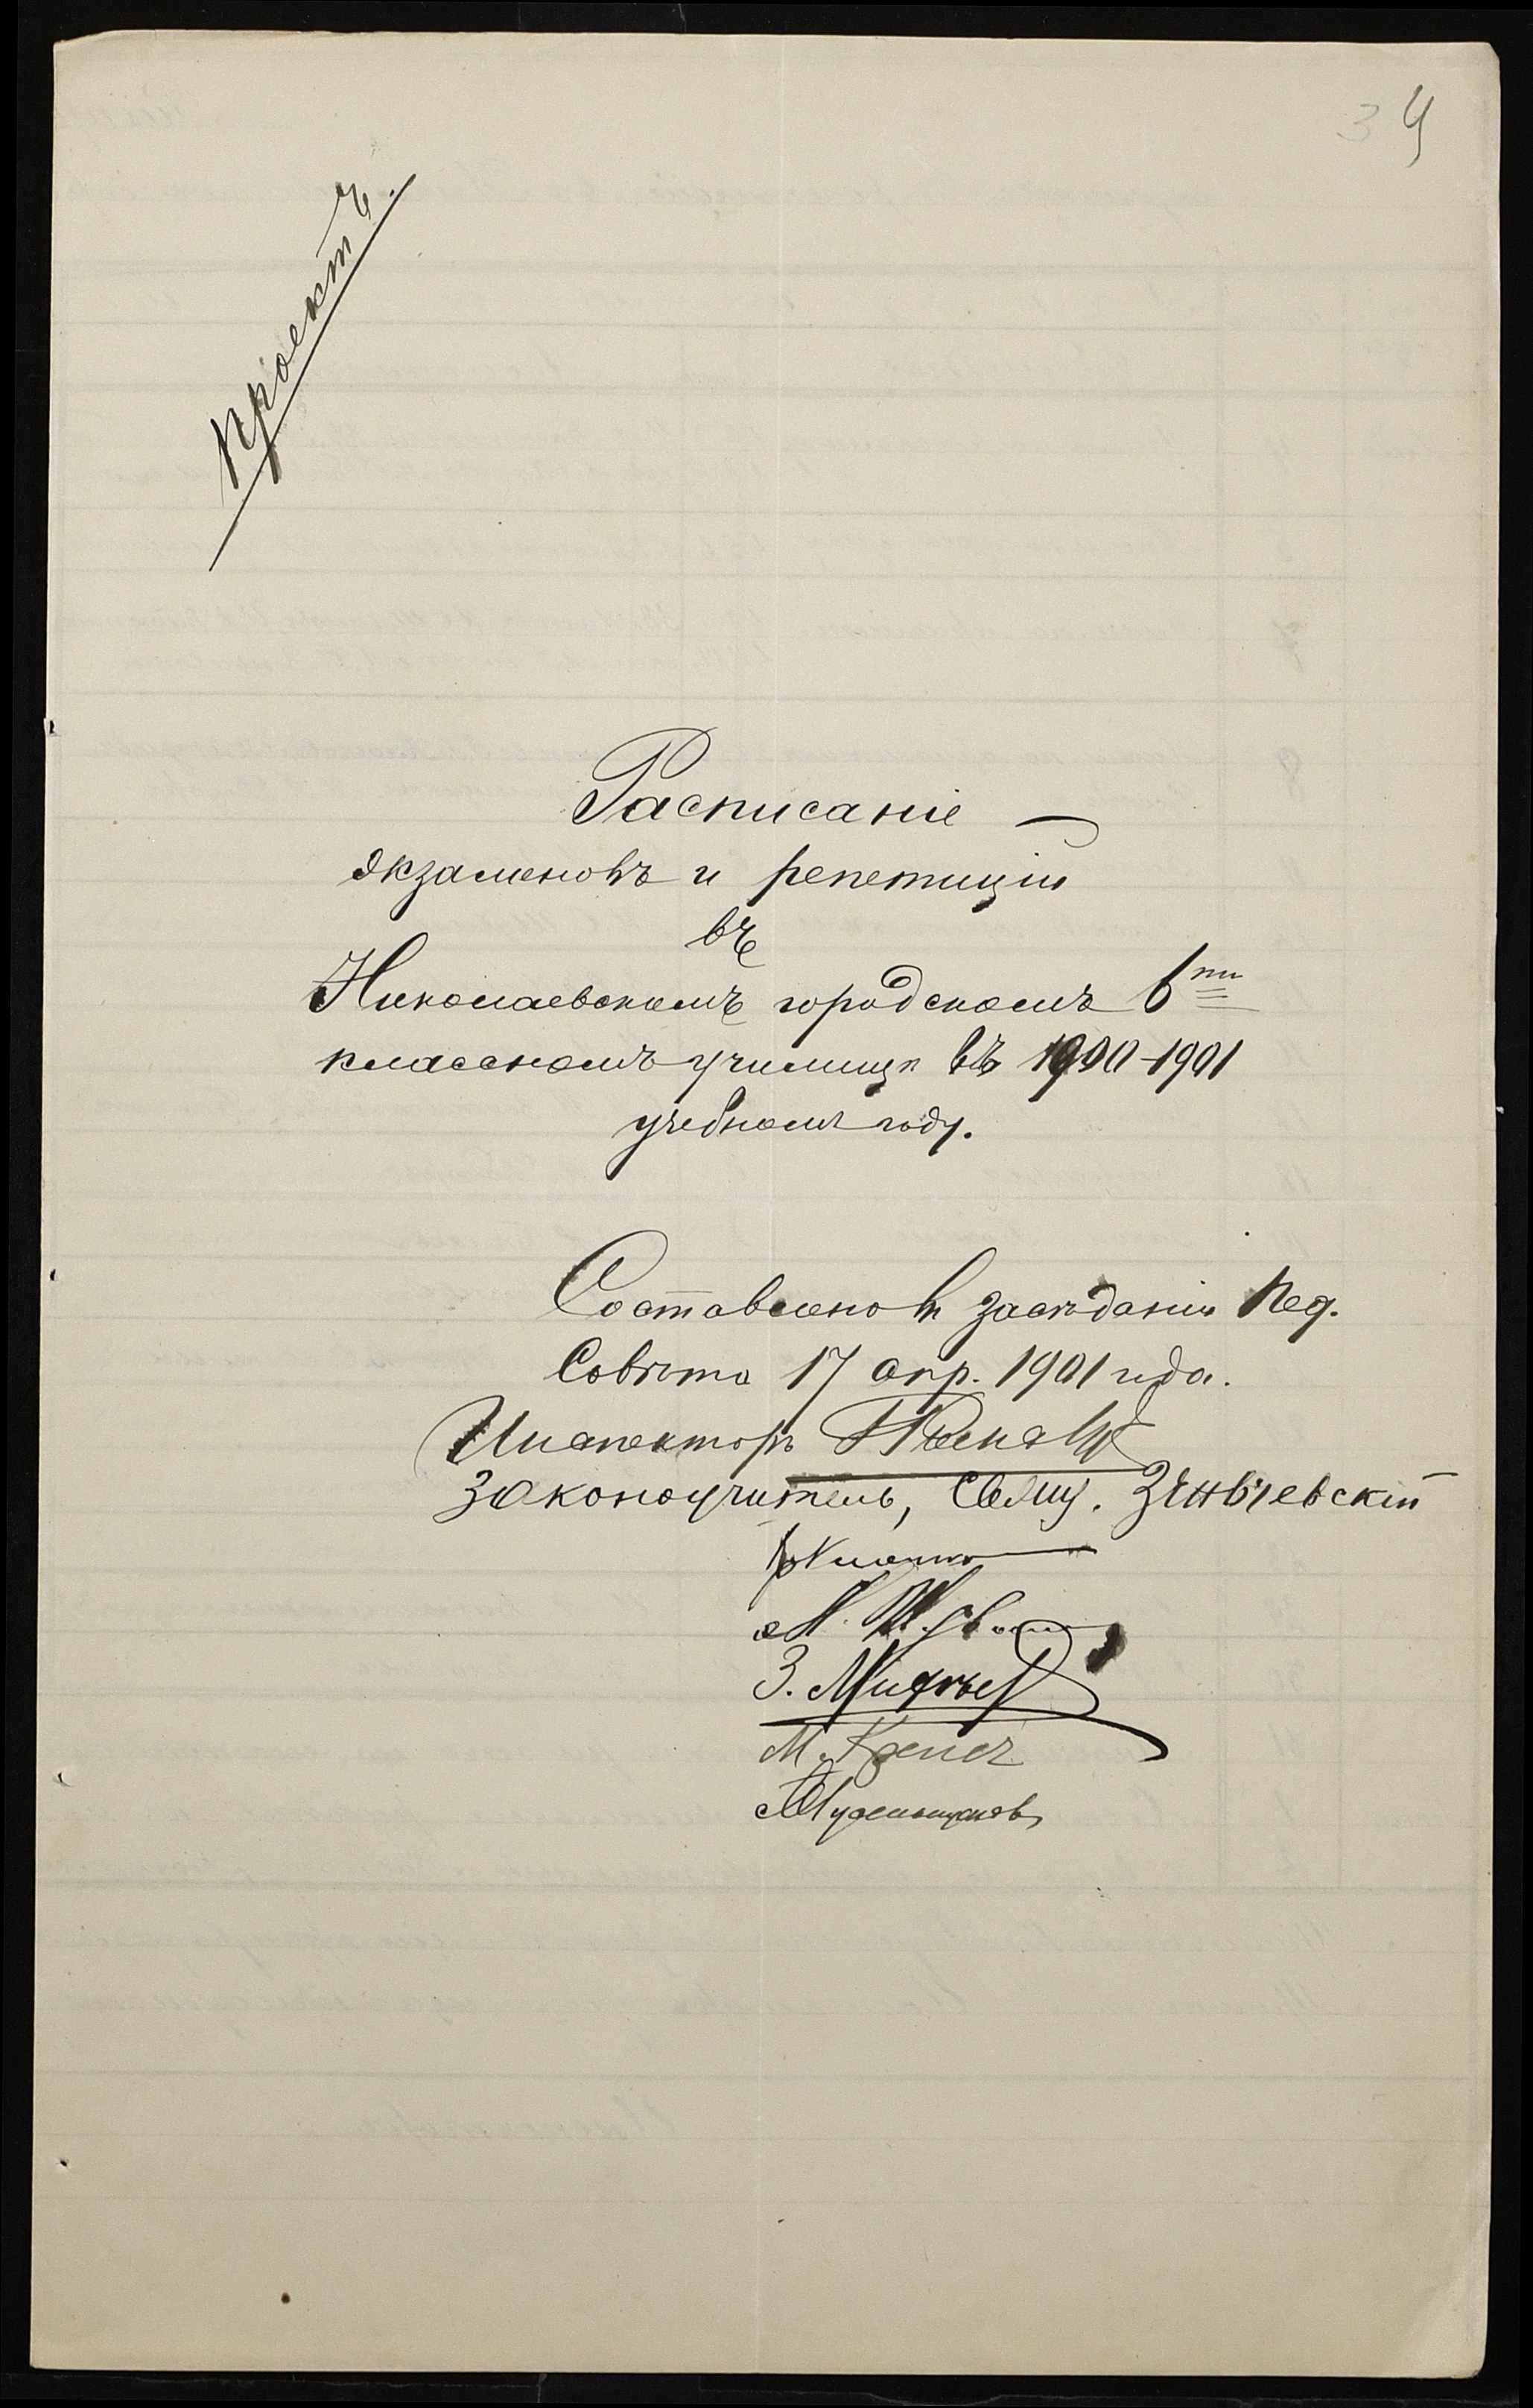 3 4
Проектъ.
Расписаніе
экзаменовъ и репетицій
въ
Николаевскомъ городскомъ 6ти
классномъ училищѣ въ 1900-1901
учебномъ году.
Составлено въ засѣданіи Пед.
Совѣта 17 апр. 1901 года.
Инспекторъ
Законоучитель, Свящ. Зиньчевскій
З.
М.